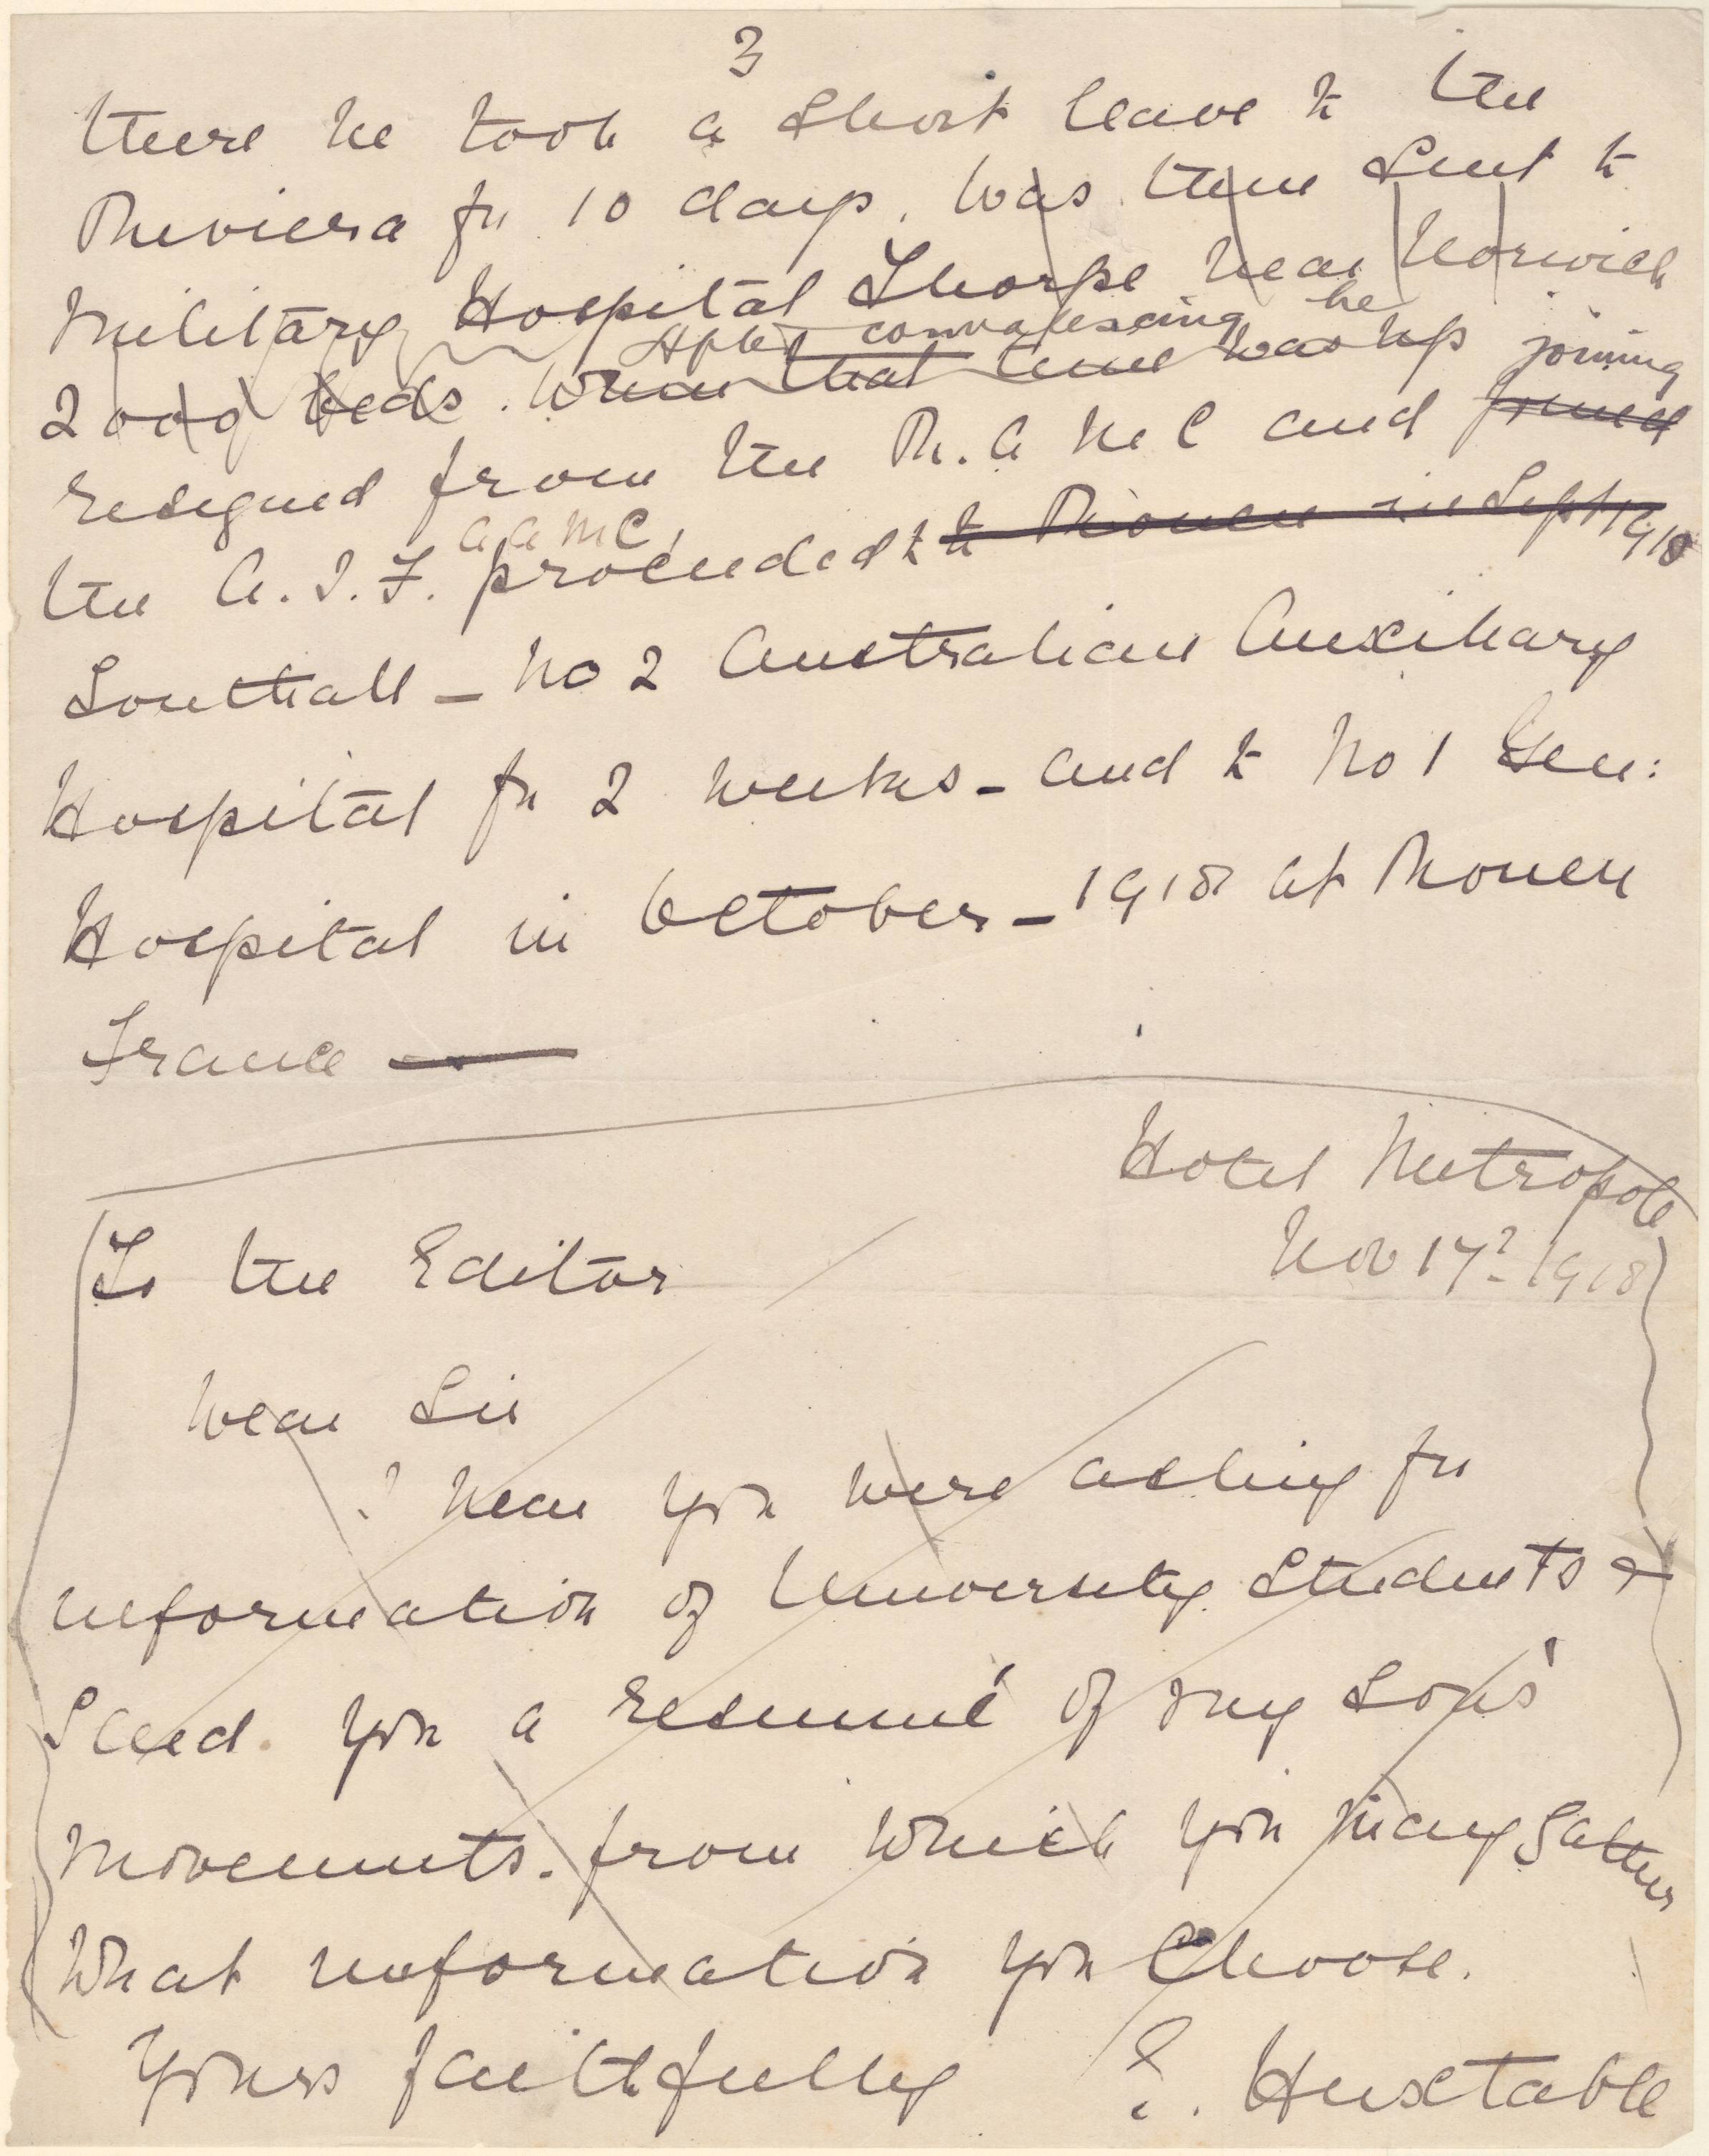 3
there he took a short leave to the
Riviera for 10 days. Was then sent to
Military Hospital Thorpe near Norwich
After convalescing he
2000 beds. When that time was up joining
resigned from the R.A M C and joined
A A M C,
the A. I. F. proceeded to to Rouen in Sept 1918
Southall - No 2 Australian Auxiliary
Hospital for 2 weeks - and to No 1 Gen:
Hospital in October - 1918 at Rouen
France —
Hotel Metropole
Nov 17? 1918
To the Editor
Dear Sir
I hear you were asking for
information of University Students &
Send you a resumé of my Son's
movements. from which you may gather
What information you Choose.
Yours faithfully E. Huxtable